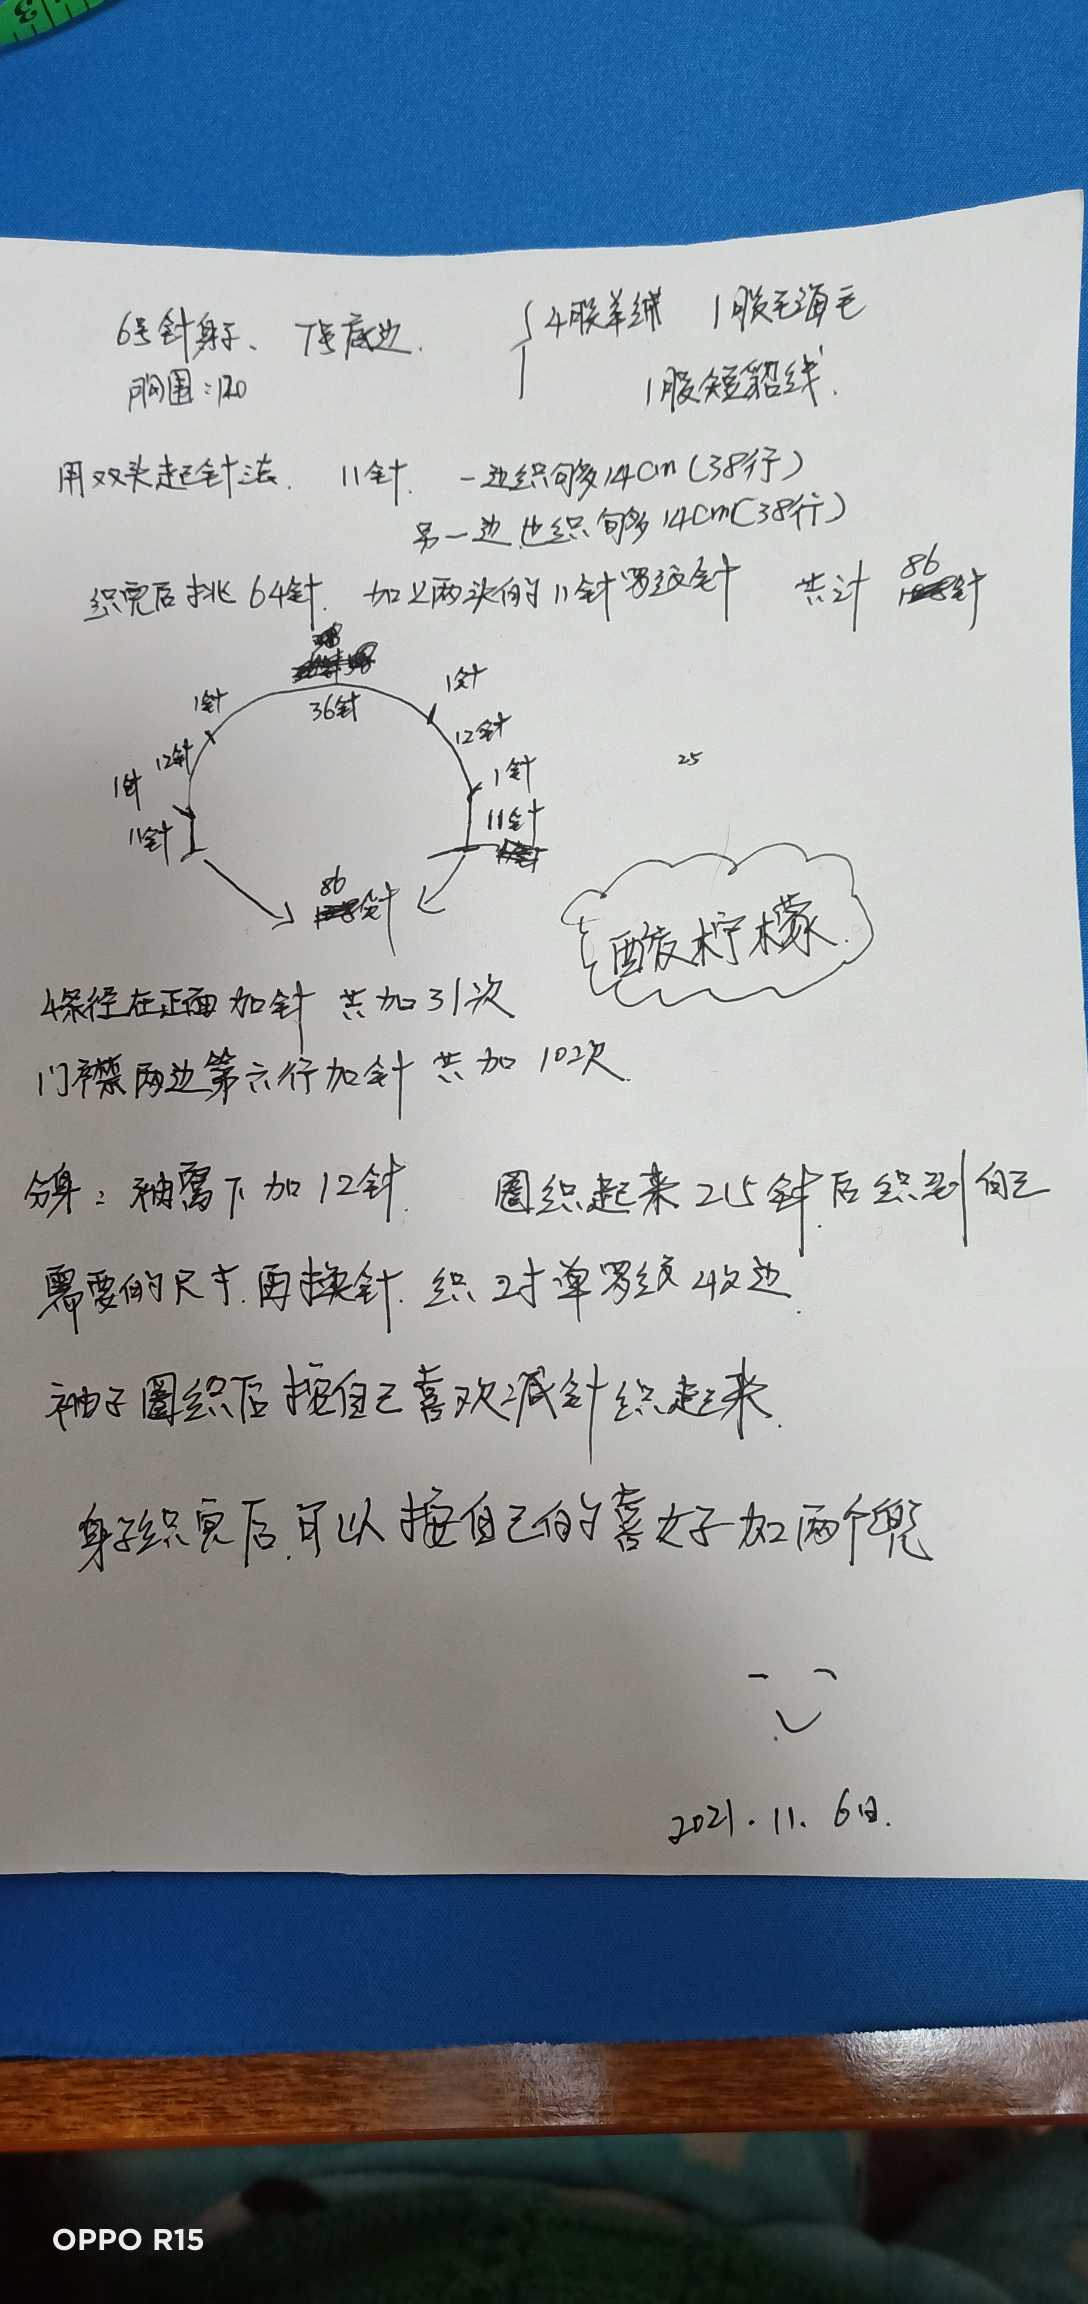 3
6号针身子、 7号底边.
{4股羊绒 1股毛海毛
胸围:120
1股短貂线.
用双头起针法. 11针. 一边织够14cm(38行)
另一边也织够14cm(38行)
织完后挑64针. 加上两头的11针罗纹针 共计 86针
1针 36针 1针
12针 12针
1针 1针
11针 11针
25
86针
酸柠檬.
4条径在正面加针 共加31次
门襟两边第六行加针 共加10次.
分身:袖窝下加12针. 圈织起来215针.后织到自己
需要的尺寸.再换针.织2寸单罗纹收边.
袖子圈织后按自己喜欢减针织起来.
身子织完后.可以按自己的喜好加两个兜
2021.11.6日.
OPPO R15